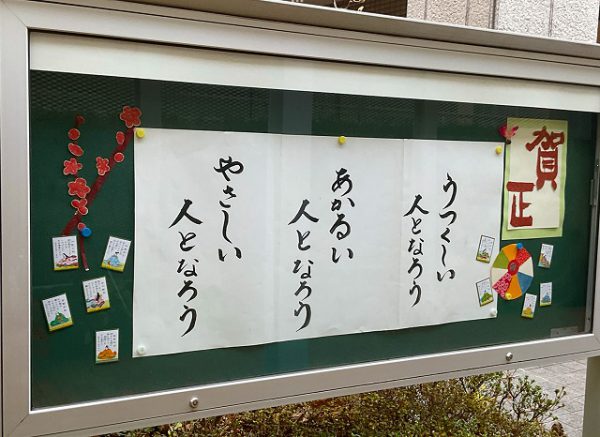 賀正
うつくしい
人となろう
あかるい
人となろう
やさしい
人となろう